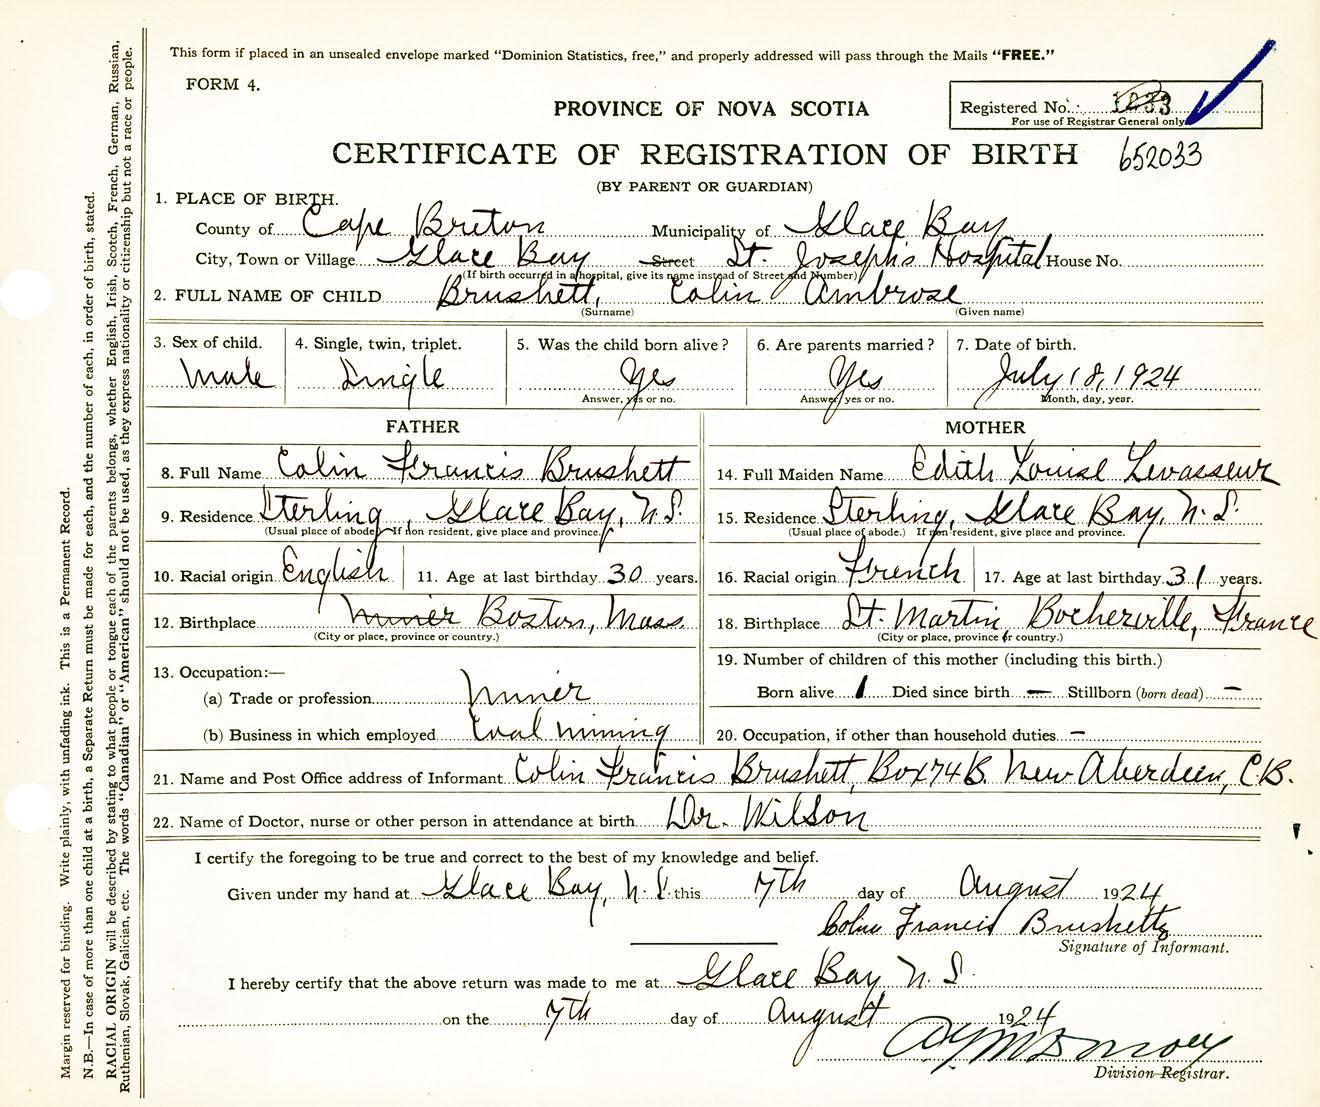 This form if placed in an unsealed envelope marked "Dominion Statistics, free," and properly addressed will pass through the Mails "FREE."
FORM 4.
PROVINCE OF NOVA SCOTIA
Registered No. 1233
For use of Registrar General only
CERTIFICATE OF REGISTRATION OF BIRTH 652033
(BY PARENT OR GUARDIAN)
1. PLACE OF BIRTH.
County of Cape Breton Municipality of Glace Bay
City, Town or Village Glace Bay Street St. Joseph's Hospital House No.
(If birth occurred in a hospital, give its name instead of Street and Number)
2. FULL NAME OF CHILD Brushett, Colin Ambrose
(Surname) (Given name)
3. Sex of child. 4. Single, twin, triplet. 5. Was the child born alive? 6. Are parents married? 7. Date of birth.
Male Single Yes Yes July 18, 1924
Answer, yes or no. Answer yes or no. Month, day, year.
FATHER MOTHER
8. Full Name Colin Francis Brushett 14. Full Maiden Name Edith Louise Levasseur
9. Residence Sterling, Glace Bay, N.S. 15. Residence Sterling, Glace Bay, N.S.
(Usual place of abode) If non resident, give place and province. (Usual place of abode.) If non resident, give place and province.
10. Racial origin English 11. Age at last birthday 30 years. 16. Racial origin French 17. Age at last birthday 31 years.
12. Birthplace Miner Boston, Mass. 18. Birthplace St. Martin Bocherville, France
(City or place, province or country.) (City or place, province or country.)
13. Occupation:— 19. Number of children of this mother (including this birth.)
(a) Trade or profession Miner Born alive 1 Died since birth — Stillborn (born dead) —
(b) Business in which employed Coal mining 20. Occupation, if other than household duties —
21. Name and Post Office address of Informant Colin Francis Brushett, Box 74 B. New Aberdeen, C.B.
22. Name of Doctor, nurse or other person in attendance at birth Dr. Wilson
I certify the foregoing to be true and correct to the best of my knowledge and belief.
Given under my hand at Glace Bay, N.S. this 7th day of August 1924
Colin Francis Brushett
Signature of Informant.
I hereby certify that the above return was made to me at Glace Bay N.S.
on the 7th day of August 1924
Division Registrar.
Margin reserved for binding. Write plainly, with unfading ink. This is a Permanent Record.
N.B.—In case of more than one child at a birth, a Separate Return must be made for each, and the number of each, in order of birth, stated.
RACIAL ORIGIN will be described by stating to what people or tongue each of the parents belongs, whether English, Irish, Scotch, French, German, Russian,
Ruthenian, Slovak, Galician, etc. The words "Canadian" or "American" should not be used, as they express nationality or citizenship but not a race or people.